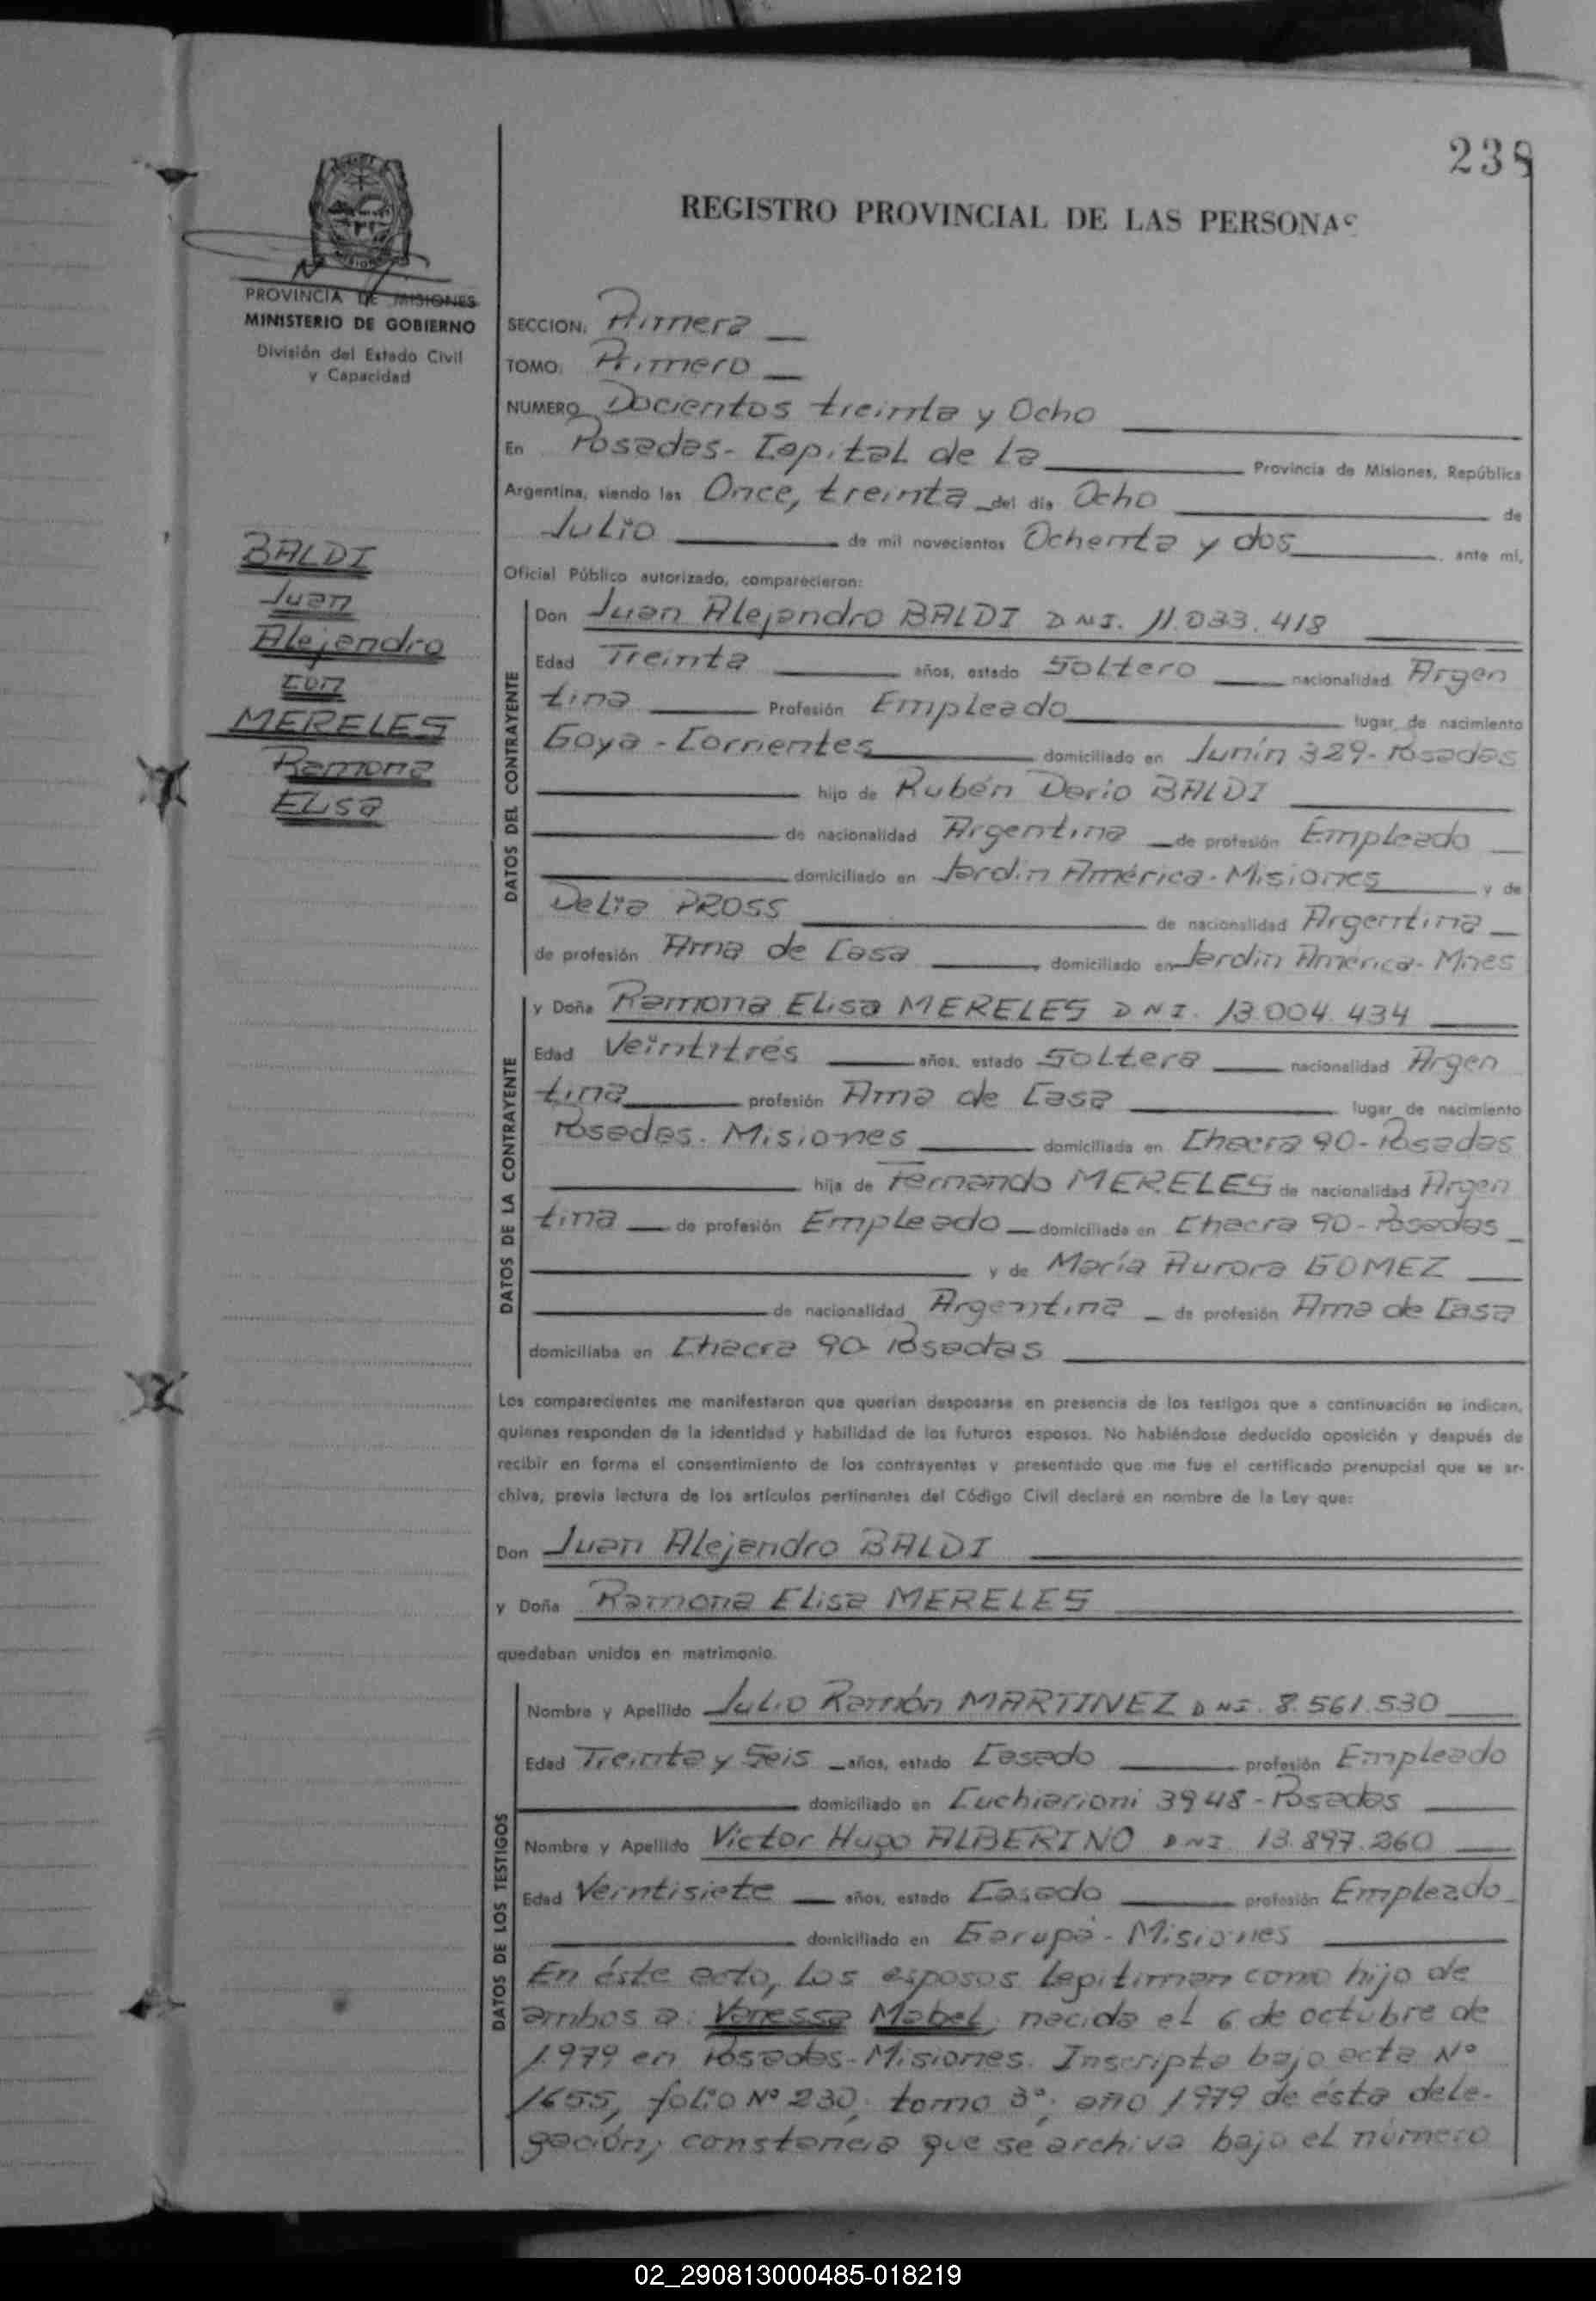 238
REGISTRO PROVINCIAL DE LAS PERSONAS
PROVINCIA DE MISIONES
MINISTERIO DE GOBIERNO
División del Estado Civil
y Capacidad
BALDI
Juan
Alejandro
con
MERELES
Ramona
Elisa
SECCION: Primera
TOMO: Primero
NUMERO Docientos treinta y Ocho
En Posadas - Capital de la Provincia de Misiones, República
Argentina, siendo las Once, treinta del día Ocho de
Julio de mil novecientos Ochenta y dos, ante mí,
Oficial Público autorizado, comparecieron:
DATOS DEL CONTRAYENTE
Don Juan Alejandro BALDI DNI. 11.033.418
Edad Treinta años, estado Soltero nacionalidad Argen
tina Profesión Empleado lugar de nacimiento
Goya - Corrientes domiciliado en Junín 329 - Posadas
hijo de Rubén Dario BALDI
de nacionalidad Argentina de profesión Empleado
domiciliado en Jardin América - Misiones y de
Delia PROSS de nacionalidad Argentina
de profesión Ama de Casa domiciliado en Jardin América - Mnes
DATOS DE LA CONTRAYENTE
y Doña Ramona Elisa MERELES DNI. 13.004.434
Edad Veintitrés años, estado Soltera nacionalidad Argen
tina profesión Ama de Casa lugar de nacimiento
Posadas - Misiones domiciliada en Chacra 90 - Posadas
hija de Fernando MERELES de nacionalidad Argen
tina de profesión Empleado domiciliada en Chacra 90 - Posadas
y de María Aurora GOMEZ
de nacionalidad Argentina de profesión Ama de Casa
domiciliaba en Chacra 90 - Posadas
Los comparecientes me manifestaron que querían desposarse en presencia de los testigos que a continuación se indican,
quienes responden de la identidad y habilidad de los futuros esposos. No habiéndose deducido oposición y después de
recibir en forma el consentimiento de los contrayentes y presentado que me fue el certificado prenupcial que se ar-
chiva, previa lectura de los artículos pertinentes del Código Civil declaré en nombre de la Ley que:
Don Juan Alejandro BALDI
y Doña Ramona Elisa MERELES
quedaban unidos en matrimonio.
DATOS DE LOS TESTIGOS
Nombre y Apellido Julio Ramón MARTINEZ DNI. 8.561.530
Edad Treinta y Seis años, estado Casado profesión Empleado
domiciliado en Cuchiarioni 3948 - Posadas
Nombre y Apellido Victor Hugo ALBERINO DNI. 13.897.260
Edad Veintisiete años, estado Casado profesión Empleado
domiciliado en Garupá - Misiones
En éste acto, los esposos legitiman como hijo de
ambos a: Vanessa Mabel, nacida el 6 de octubre de
1979 en Posadas - Misiones. Inscripta bajo acta Nº
1655, folio Nº 230, tomo 3º, año 1979 de ésta dele-
gación, constancia que se archiva bajo el número
02_290813000485-018219